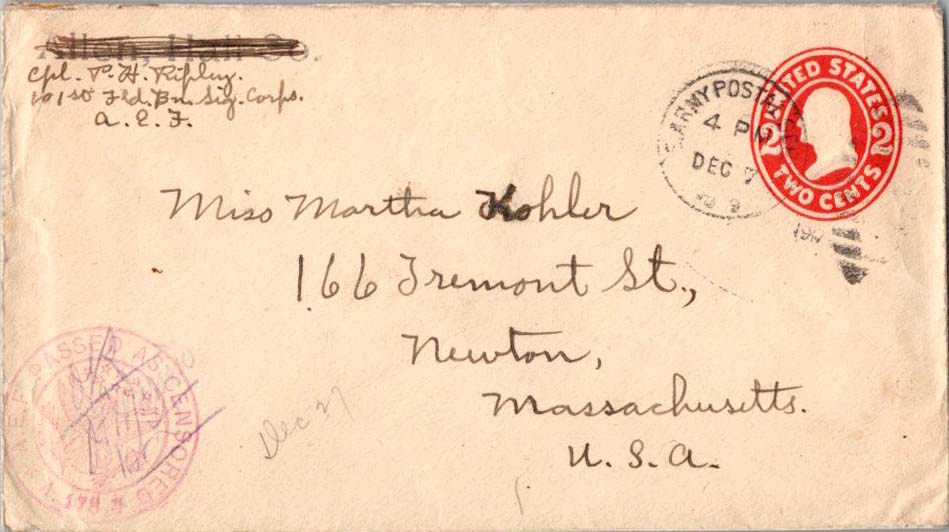 Allen, Hall Co.
Cpl. P. H. Ripley.
101st Fld. Bn. Sig. Corps.
A. E. F.
ARMY POSTAL
4 PM
DEC 7
UNITED STATES
2 2
TWO CENTS
Miss Martha Kohler
166 Tremont St.,
Newton,
Massachusetts.
U. S. A.
A.E.F. PASSED AS CENSORED
Dec 27